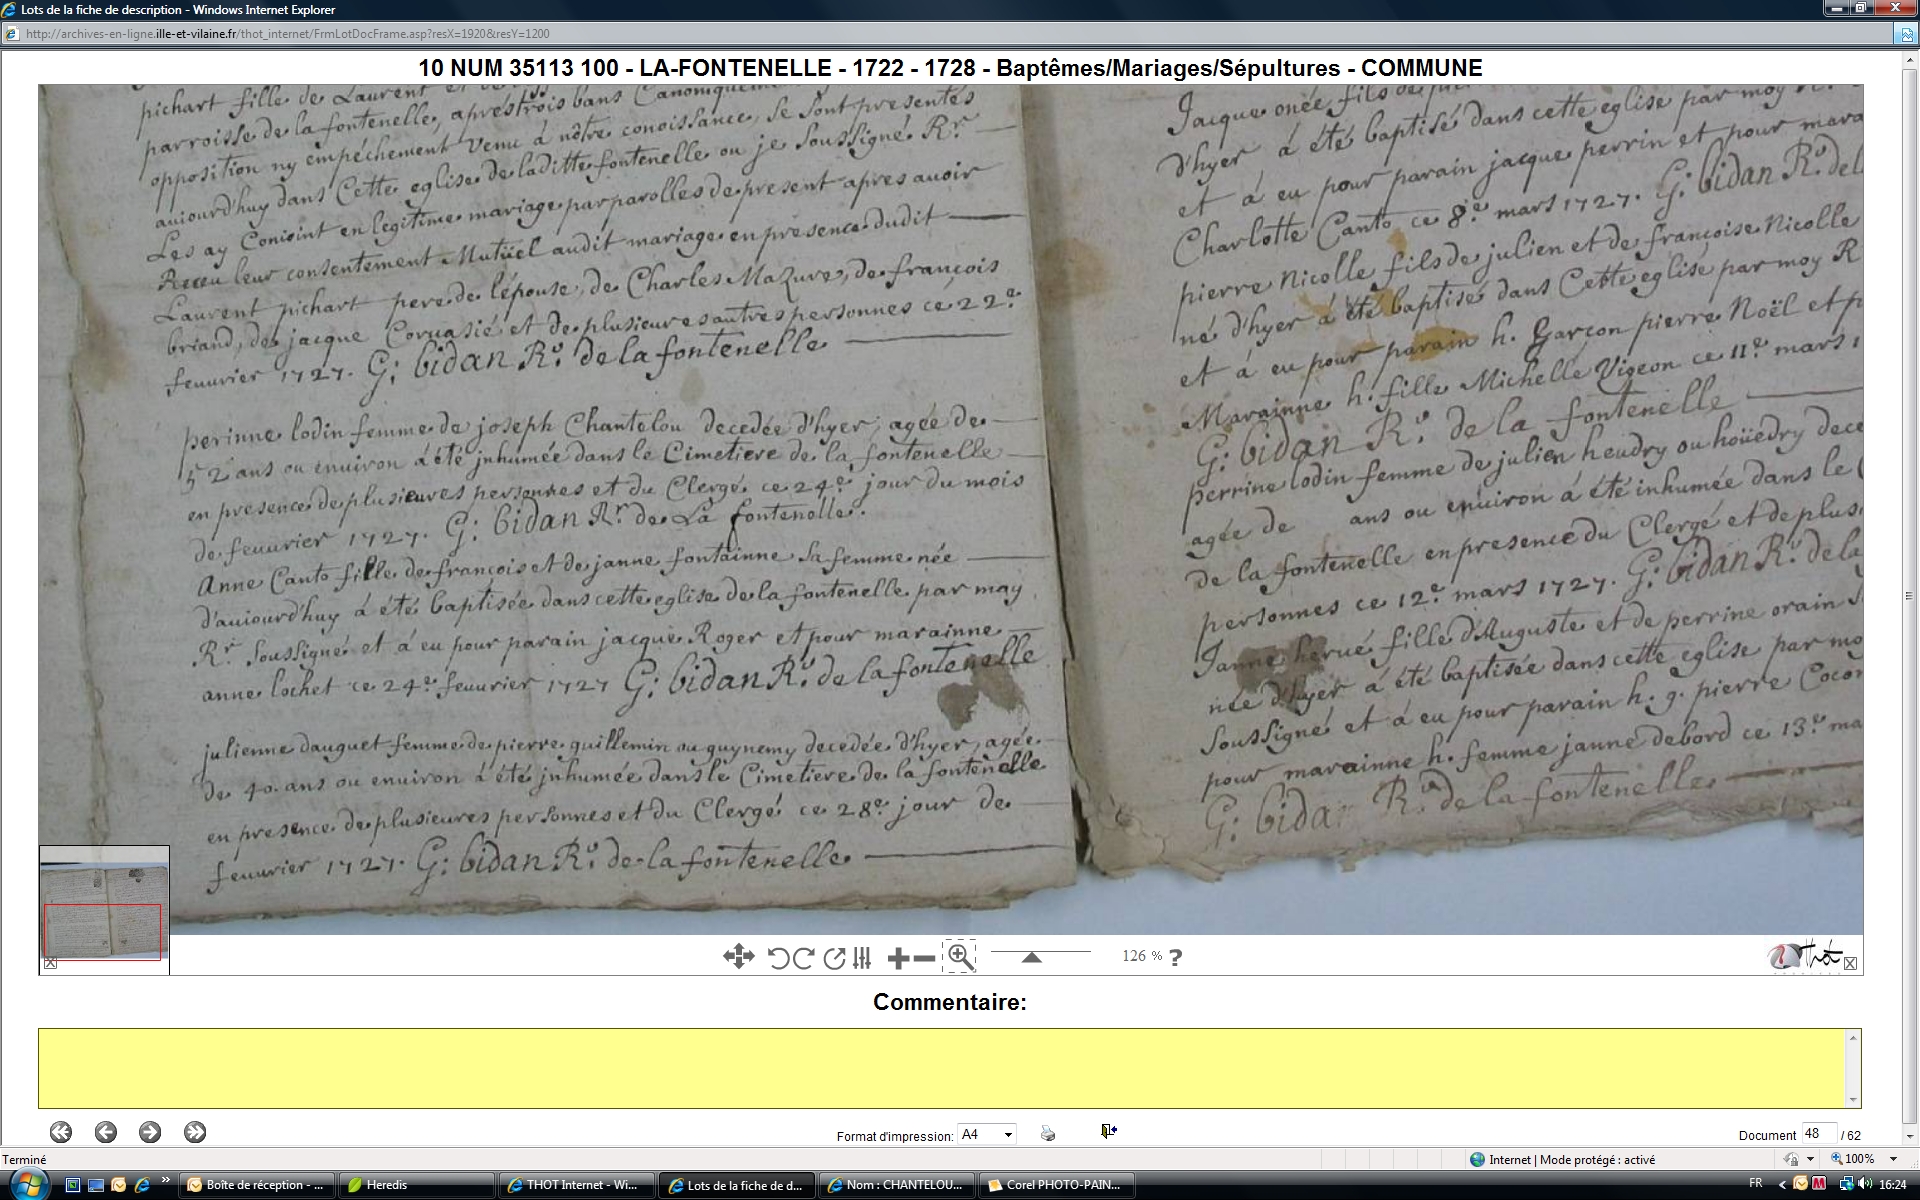 Lots de la fiche de description - Windows Internet Explorer
http://archives-en-ligne.ille-et-vilaine.fr/thot_internet/FrmLotDocFrame.asp?resX=1920&resY=1200
10 NUM 35113 100 - LA-FONTENELLE - 1722 - 1728 - Baptêmes/Mariages/Sépultures - COMMUNE
pichart fille de Laurent et de
parroisse de la fontenelle, apres trois bans Canoniquement
opposition ny empéchement venu á nôtre conoissance, se sont presentés
auiourd'huy dans Cette eglise de laditte fontenelle ou je soussigné Rr
Les ay Conioint en legitime mariage par parolles de present apres auoir
Receu leur consentement Mutüel audit mariage en presence dudit
Laurent pichart pere de lépouse, de Charles Mazure, de françois
briand, de jacque Coruasié et de plusieures autres personnes ce 22e
feuurier 1727. G: bidan Rr. de la fontenelle
perinne lodin femme de joseph Chantelou decedée d'hyer, agée de
52 ans ou enuiron á été jnhumée dans le Cimetiere de la fontenelle
en presence de plusieures personnes et du Clergé ce 24e jour du mois
de feuurier 1727. G: bidan Rr de La fontenolle.
Anne Canto fille de françois et de janne fontainne sa femme née
d'auiourd'huy á été baptisée dans cette eglise de la fontenelle par moy
Rr. soussigné et á eu pour parain jacque Roger et pour marainne
anne lochet ce 24e feuurier 1727 G: bidan Rr. de la fontenelle
julienne dauguet femme de pierre guillemin ou guynemy decedée d'hyer, agée
de 40. ans ou enuiron á été jnhumée dans le Cimetiere de la fontenelle
en presence de plusieures personnes et du Clergé ce 28e jour de
feuurier 1727. G: bidan Rr. de la fontenelle
Jacque onée fils de
d'hyer á été baptisé dans cette eglise par moy
et á eu pour parain jacque perrin et pour mara
Charlotte Canto ce 8e mars 1727. G: bidan Rr. del
pierre Nicolle fils de julien et de françoise Nicolle
né d'hyer á été baptisé dans Cette eglise par moy R
et á eu pour parain h. Garçon pierre Noël et p
Marainne h. fille Michelle Vigeon ce 11e mars 1
G: bidan Rr. de la fontenelle
perrine lodin femme de julien heudry ou hoüedry dece
agée de ans ou enuiron á été inhumée dans le C
de la fontenelle en presence du Clergé et de plus
personnes ce 12e mars 1727. G: bidan Rr. de la
Janne hervé fille d'Auguste et de perrine orain s
née d'hyer á été baptisée dans cette eglise par mo
soussigné et á eu pour parain h. g. pierre Cocon
pour marainne h. femme janne debord ce 13e ma
G: bidan Rr. de la fontenelle
126 % ?
Thot
Commentaire:
Format d'impression: A4
Document 48 / 62
Terminé
Internet | Mode protégé : activé
100%
Boîte de réception - ...
Heredis
THOT Internet - Wi...
Lots de la fiche de d...
Nom : CHANTELOU...
Corel PHOTO-PAIN...
FR
16:24